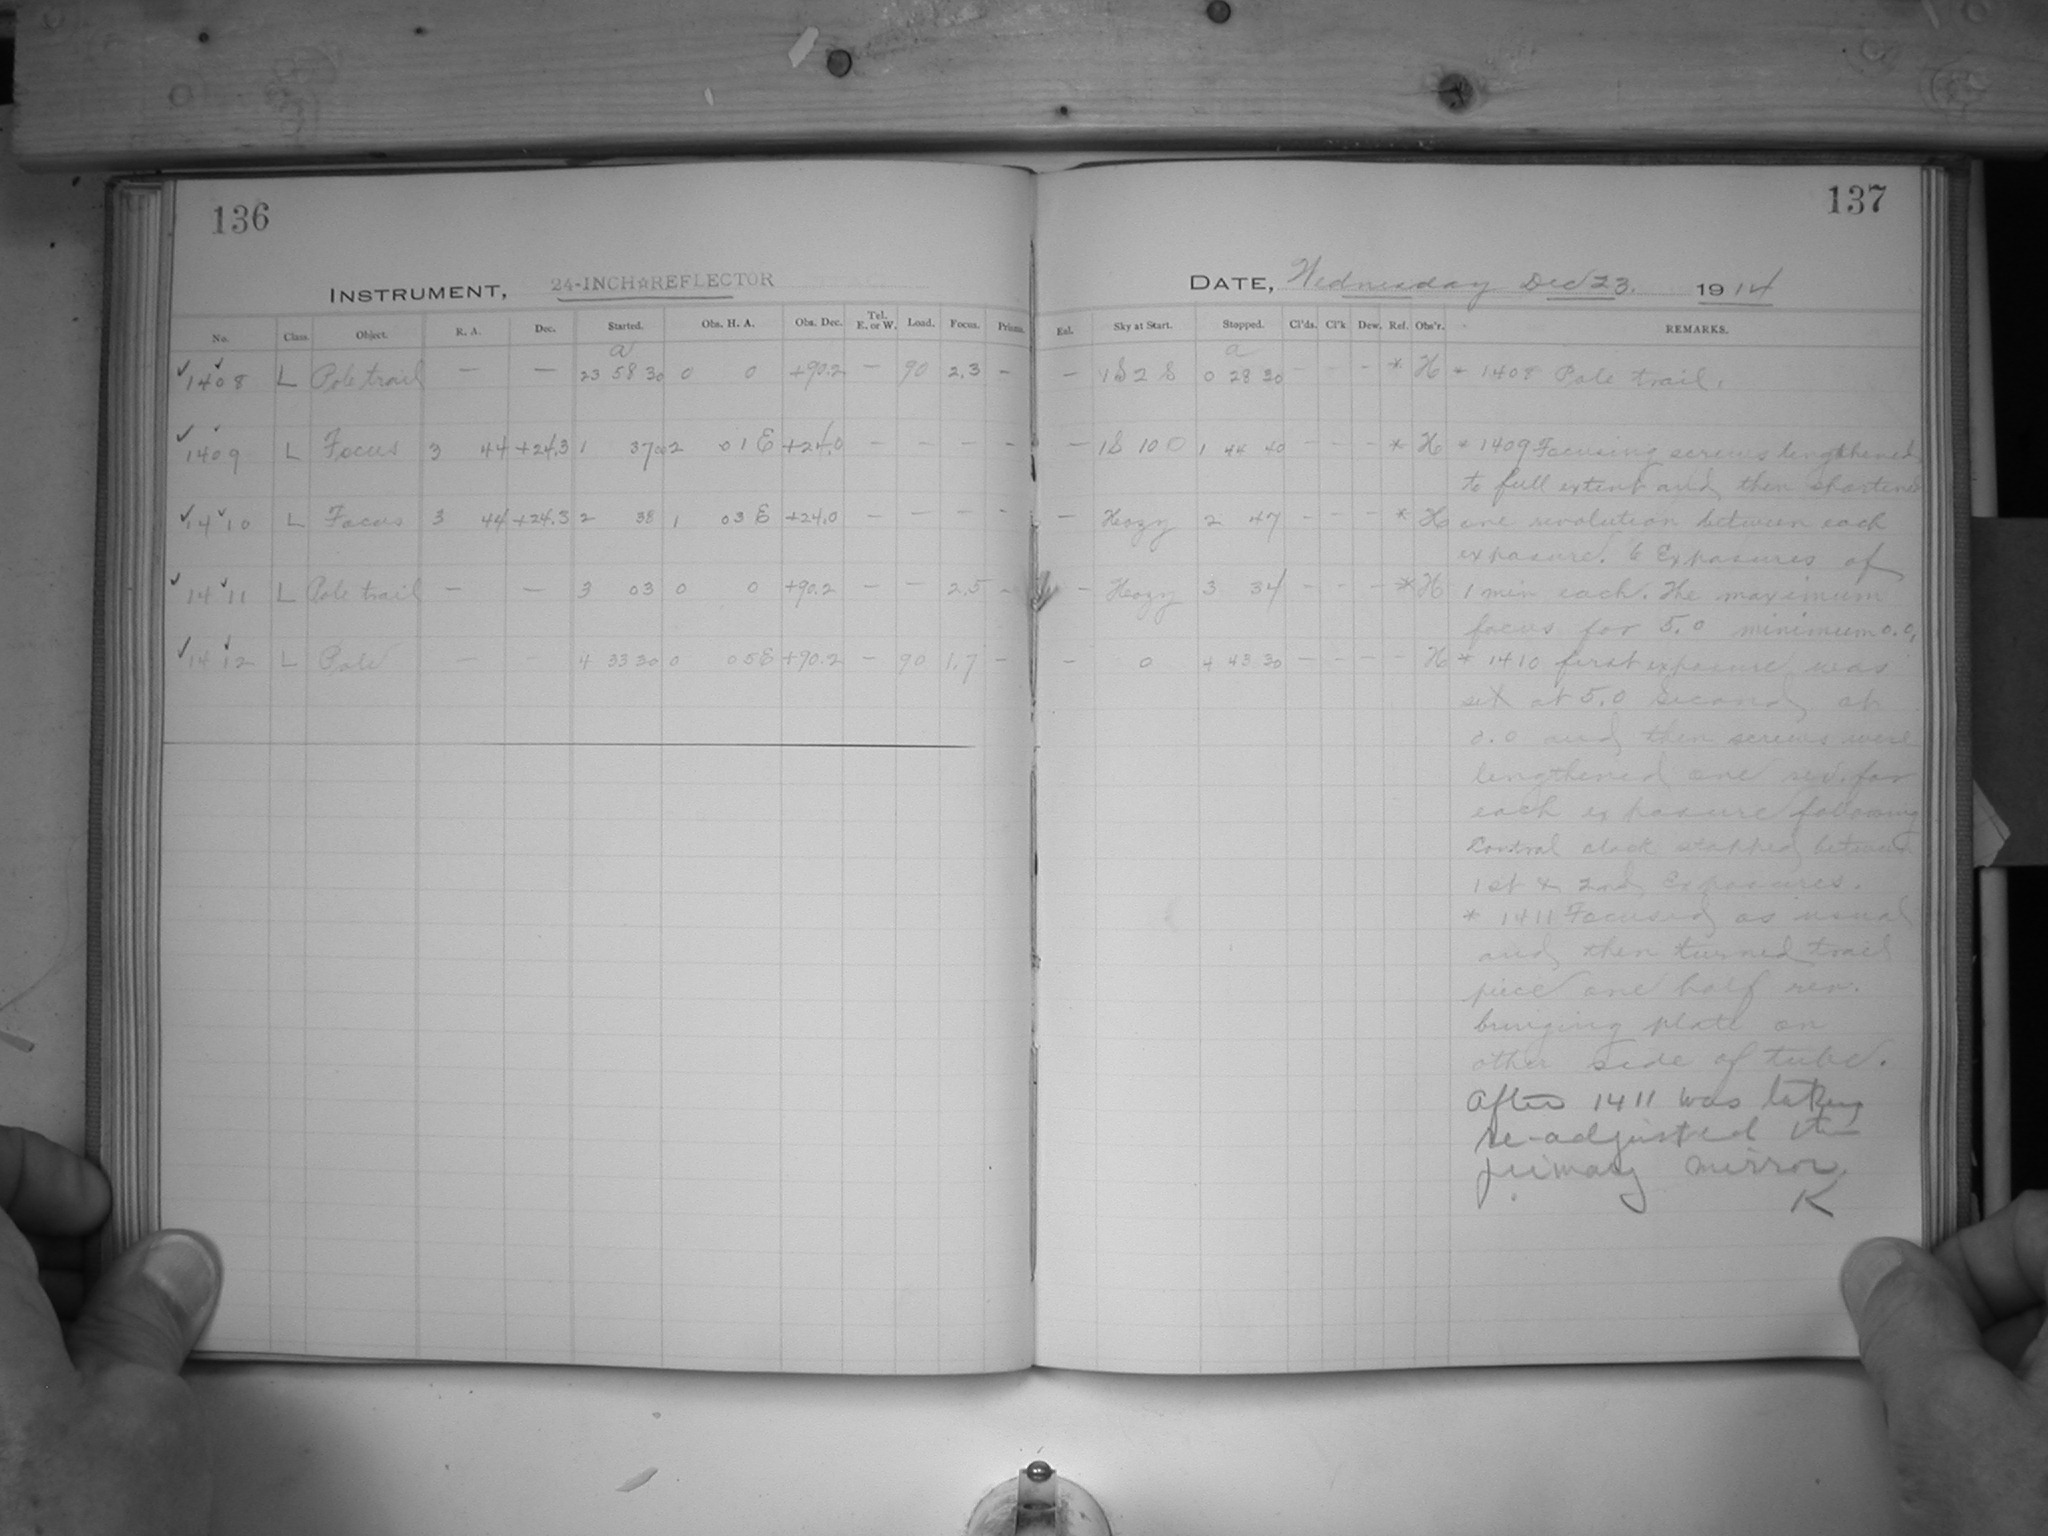 136
INSTRUMENT, 24-INCH☆REFLECTOR
No. Class. Object. R. A. Dec. Started. Obs. H. A. Obs. Dec. Tel. E. or W. Load. Focus. Prisms.
a
1408 L Pole trail — — 23 58 30 0 0 +90.2 — 90 2.3 –
1409 L Focus 3 44 +24.3 1 37 00 2 01 E +24.0 — — — –
1410 L Focus 3 44 +24.3 2 38 1 03 E +24.0 — — — –
1411 L Pole trail — — 3 03 0 0 +90.2 — — 2.5 –
1412 L Pole — — 4 33 30 0 05 E +90.2 — 90 1.7 –
137
DATE, Wednesday Dec 23. 1914
Eal. Sky at Start. Stopped. Cl'ds. Cl'k Dew. Ref. Obs'r. REMARKS.
a
— 1S 2 S 0 28 30 – – – * H * 1408 Pole trail.
— 1S 10 0 1 44 40 – – – * H * 1409 Focusing screws lengthened
to full extent and then shortened
— Heazy 2 47 – – – * H one revolution between each
exposure. 6 Exposures of
— Heazy 3 34 – – – * H 1 min each. The maximum
focus for 5.0 minimum 0.0,
— 0 4 43 30 – – – – H * 1410 first exposure was
set at 5.0 second at
0.0 and then screws were
lengthened one rev. for
each exposure following
Control clock stopped between
1st & 2nd Exposures.
* 1411 Focused as usual
and then turned trail
piece one half rev.
bringing plate on
other side of tube.
After 1411 was taken
re-adjusted the
primary mirror.
K